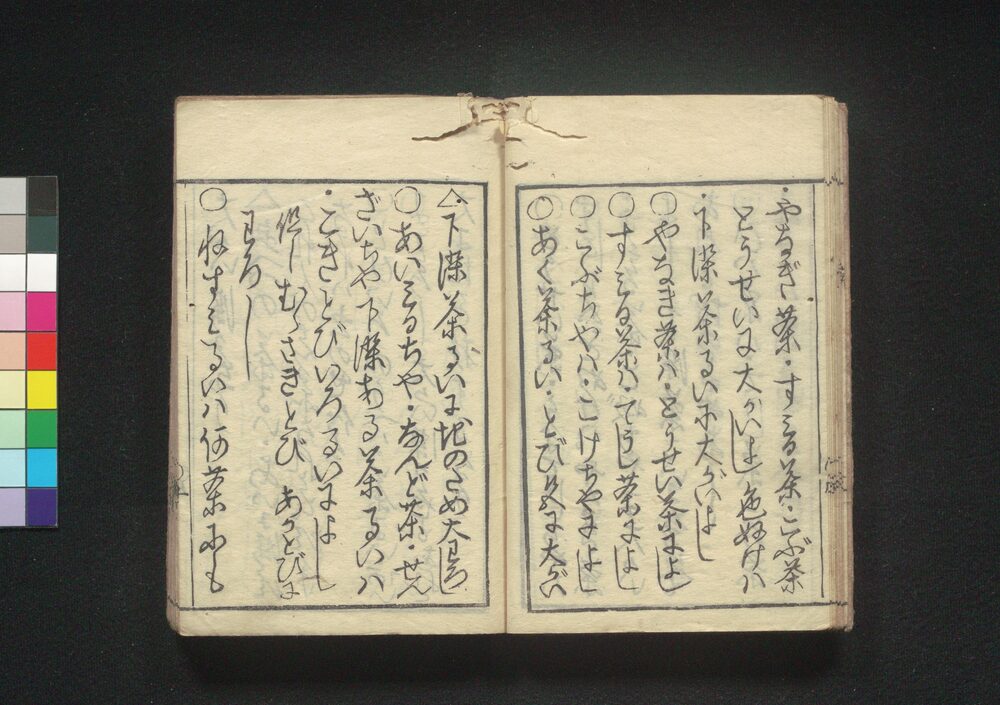 ・やなぎ茶・すゝる茶・こぶ茶
とうせいに大がいよし色ぬけハ
・下染茶るいに大がいよし
○やなき茶ハ・とうせい茶によし
○すゝる茶ハてうし茶によし
○こぶちやハ・こけちやによし
○あく茶るい・とび色に大がい
△・下染茶るいに地のため大わろし
○あいミるちや・なんど茶・せん
ざいちや下染ある茶るいハ
・こきとびいろるいによし
但しむらさきとびあかとびに
わろし
○ねずミるいハ何茶にも